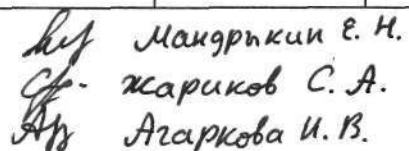 Мандрыкин Е. Н.
Жариков С. А.
Агаркова И. В.